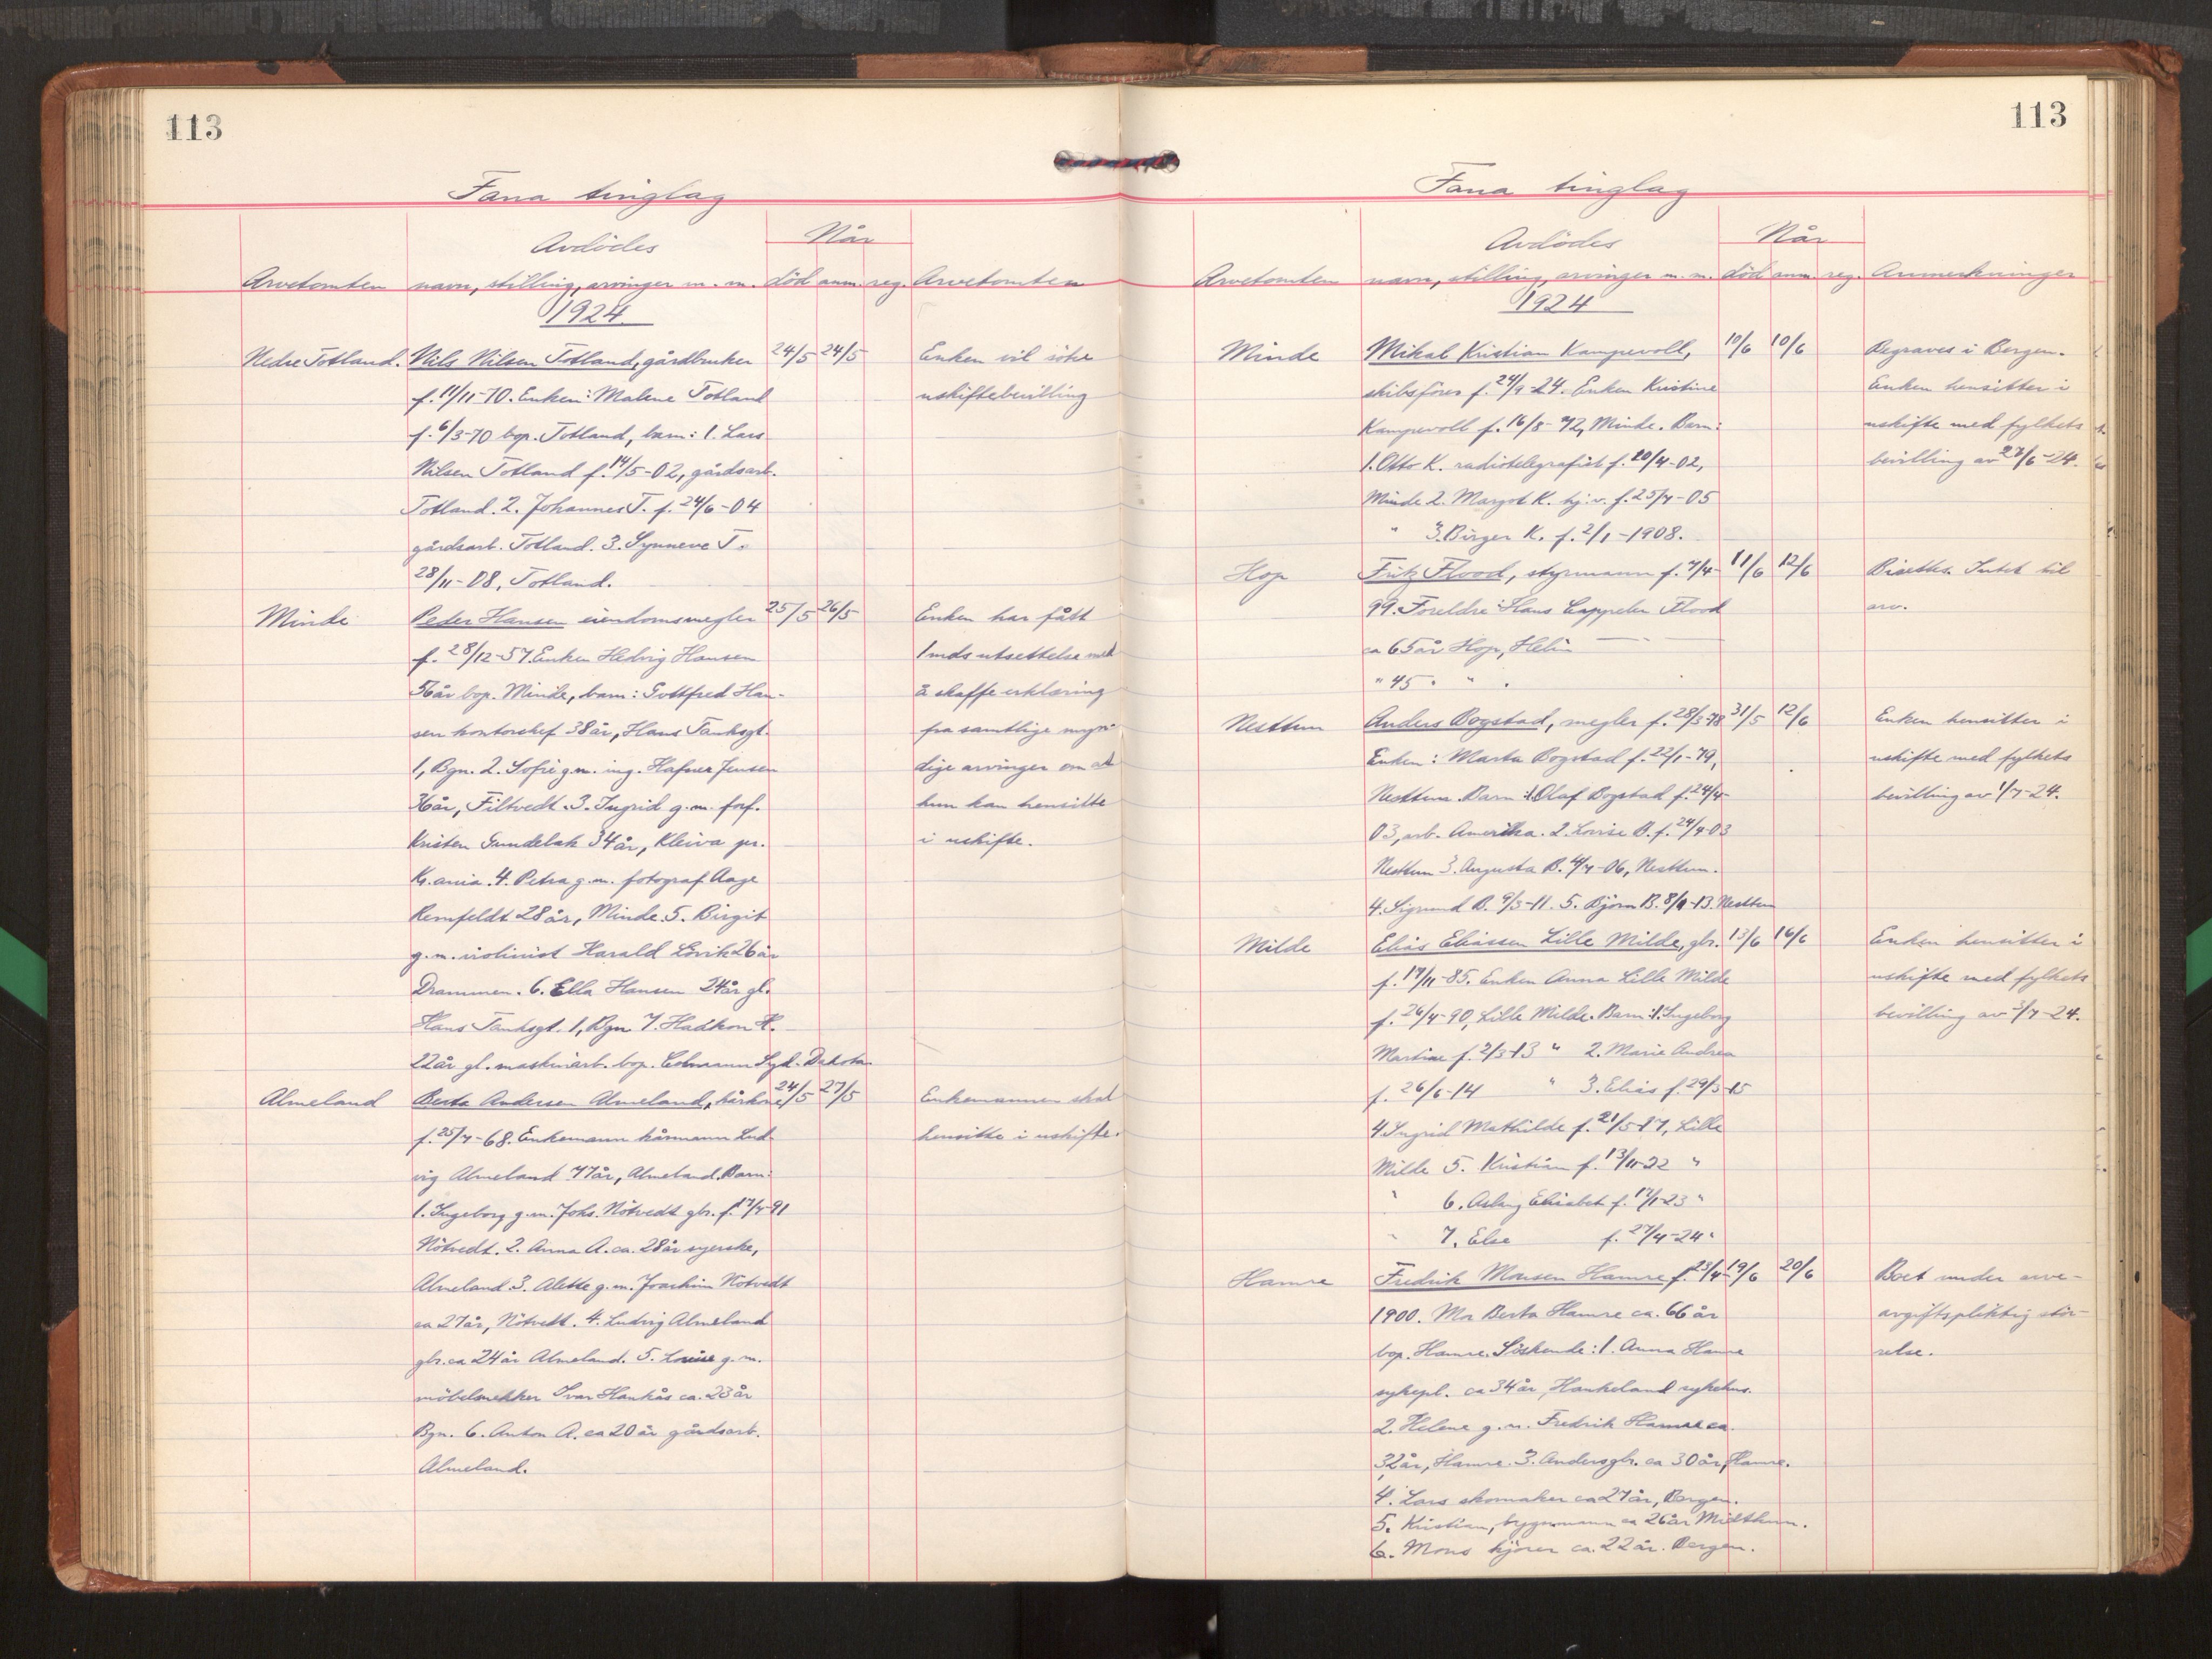 113
Fana tinglag
Når
Avdödes
Arvetomten navn, stilling, arvinger m. m. död anm. reg. Arvetomten
1924
Nedre Totland. Nils Nilsen Totland, gårdbruker 24/5 24/5 Enken vil söke
f. 11/11-70. Enken: Malene Totland uskiftebevilling
f. 6/3-70 bop. Totland, barn: 1. Lars
Nilsen Totland f. 14/5-02, gårdsarb.
Totland. 2. Johannes T. f. 24/6-04
gårdsarb. Totland. 3. Synneve T.
28/11-08, Totland.
Minde Peder Hansen eiendomsmegler 25/5 26/5 Enken har fått
f. 28/12-57. Enken Hedvig Hansen 1 mds utsettelse med
56 år bop. Minde, barn: Gottfred Han- å skaffe erklæring
sen kontorchef 38 år, Hans Tanksgt. fra samtlige myn-
1, Bgn. 2. Sofie g.m. ing. Hafner Jensen dige arvinger om at
36 år, Filtvedt. 3. Ingrid g.m. forf. hun kan hensitte
Kristen Gundelak 34 år, Kleiva pr. i uskifte.
Kr.ania. 4. Petra g.m. fotograf Aage
Remfeldt 28 år, Minde. 5. Birgit
g.m. violinist Harald Lövik 26 år
Drammen. 6. Ella Hansen 24 år gl.
Hans Tanksgt. 1, Bgn 7. Haakon H.
22 år gl. maskinarb. bop. Syd-Dakota
Almeland Berta Andersen Almeland, kårkone 24/5 27/5 Enkemannen skal
f. 25/7-68. Enkemann kårmann Lud- hensitte i uskifte.
vig Almeland 77 år, Almeland. Barn:
1. Ingeborg g.m. Johs. Nötvedt gbr. f. 17/7-91
Nötvedt. 2. Anna A. ca. 28 år syerske,
Almeland 3. Alette g.m. Joachim Nötvedt
ca 27 år, Nötvedt. 4. Ludvig Almeland
gbr. ca 24 år Almeland. 5. Louise g.m.
möbelsnekker Ivar Haukås ca. 23 år
Bgn. 6. Anton A. ca 20 år gårdsarb.
Almeland.
113
Fana tinglag
Når
Avdödes
Arvetomten navn, stilling, arvinger m. m. död anm. reg. Anmerkninger
1924
Minde Mikal Kristian Kampevoll, 10/6 10/6 Begraves i Bergen.
skibsförer f. 24/9-24. Enken Kristine Enken hensitter i
Kampevoll f. 16/8-72, Minde. Barn: uskifte med fylkets
1. Otto K. radiotelegrafist f. 20/4-02, bevilling av 27/6-24.
Minde 2. Margot K. hj.v. f. 25/7-05
" 3. Birger K. f. 2/1-1908.
Hop Fritz Flood, styrmann f. 7/4- 11/6 12/6 Intet til
99. Foreldre: Hans Cappelen Flood arv.
ca 65 år Hop, Helin
" 45 " " "
Nesttun Anders Bogstad, megler f. 28/3-78 31/5 12/6 Enken hensitter i
Enken: Marta Bogstad f. 22/1-79, uskifte med fylkets
Nesttun. Barn: 1. Olaf Bogstad f. 24/4- bevilling av 1/7-24.
03, arb. Amerika. 2. Lovise B. f. 24/4-03
Nesttun 3. Augusta B. 4/7-06, Nesttun.
4. Sigmund B. 9/3-11. 5. Björn B. 8/9-13. Nesttun
Milde Elias Eliassen Lille Milde, gbr. 13/6 16/6 Enken hensitter i
f. 17/11-85. Enken Anna Lille Milde uskifte med fylkets
f. 26/4-90, Lille Milde. Barn: 1. Ingeborg bevilling av 3/7-24.
Martine f. 2/3-13 " 2. Marie Andrea
f. 26/6-14 " 3. Elias f. 29/5-15
4. Ingrid Mathilde f. 21/5-17, Lille
Milde 5. Kristian f. 13/11-22 "
" 6. Aslaug Elisabet f. 17/1-23 "
" 7. Else f. 27/4-24 "
Hamre Fredrik Monsen Hamre f. 23/4- 19/6 20/6 Boet under arve-
1900. Mor Berta Hamre ca. 66 år avgiftspliktig stör-
bop. Hamre. Söskende: 1. Anna Hamre relse.
sykepl. ca 34 år, Haukeland sykehus.
2. Helene g.m. Fredrik Hamre ca.
32 år, Hamre. 3. Anders gbr. ca 30 år, Hamre.
4. Lars skomaker ca 27 år, Bergen.
5. Kristian, bygnmann ca 26 år Midttun.
6. Mons kjörer ca. 22 år. Bergen.